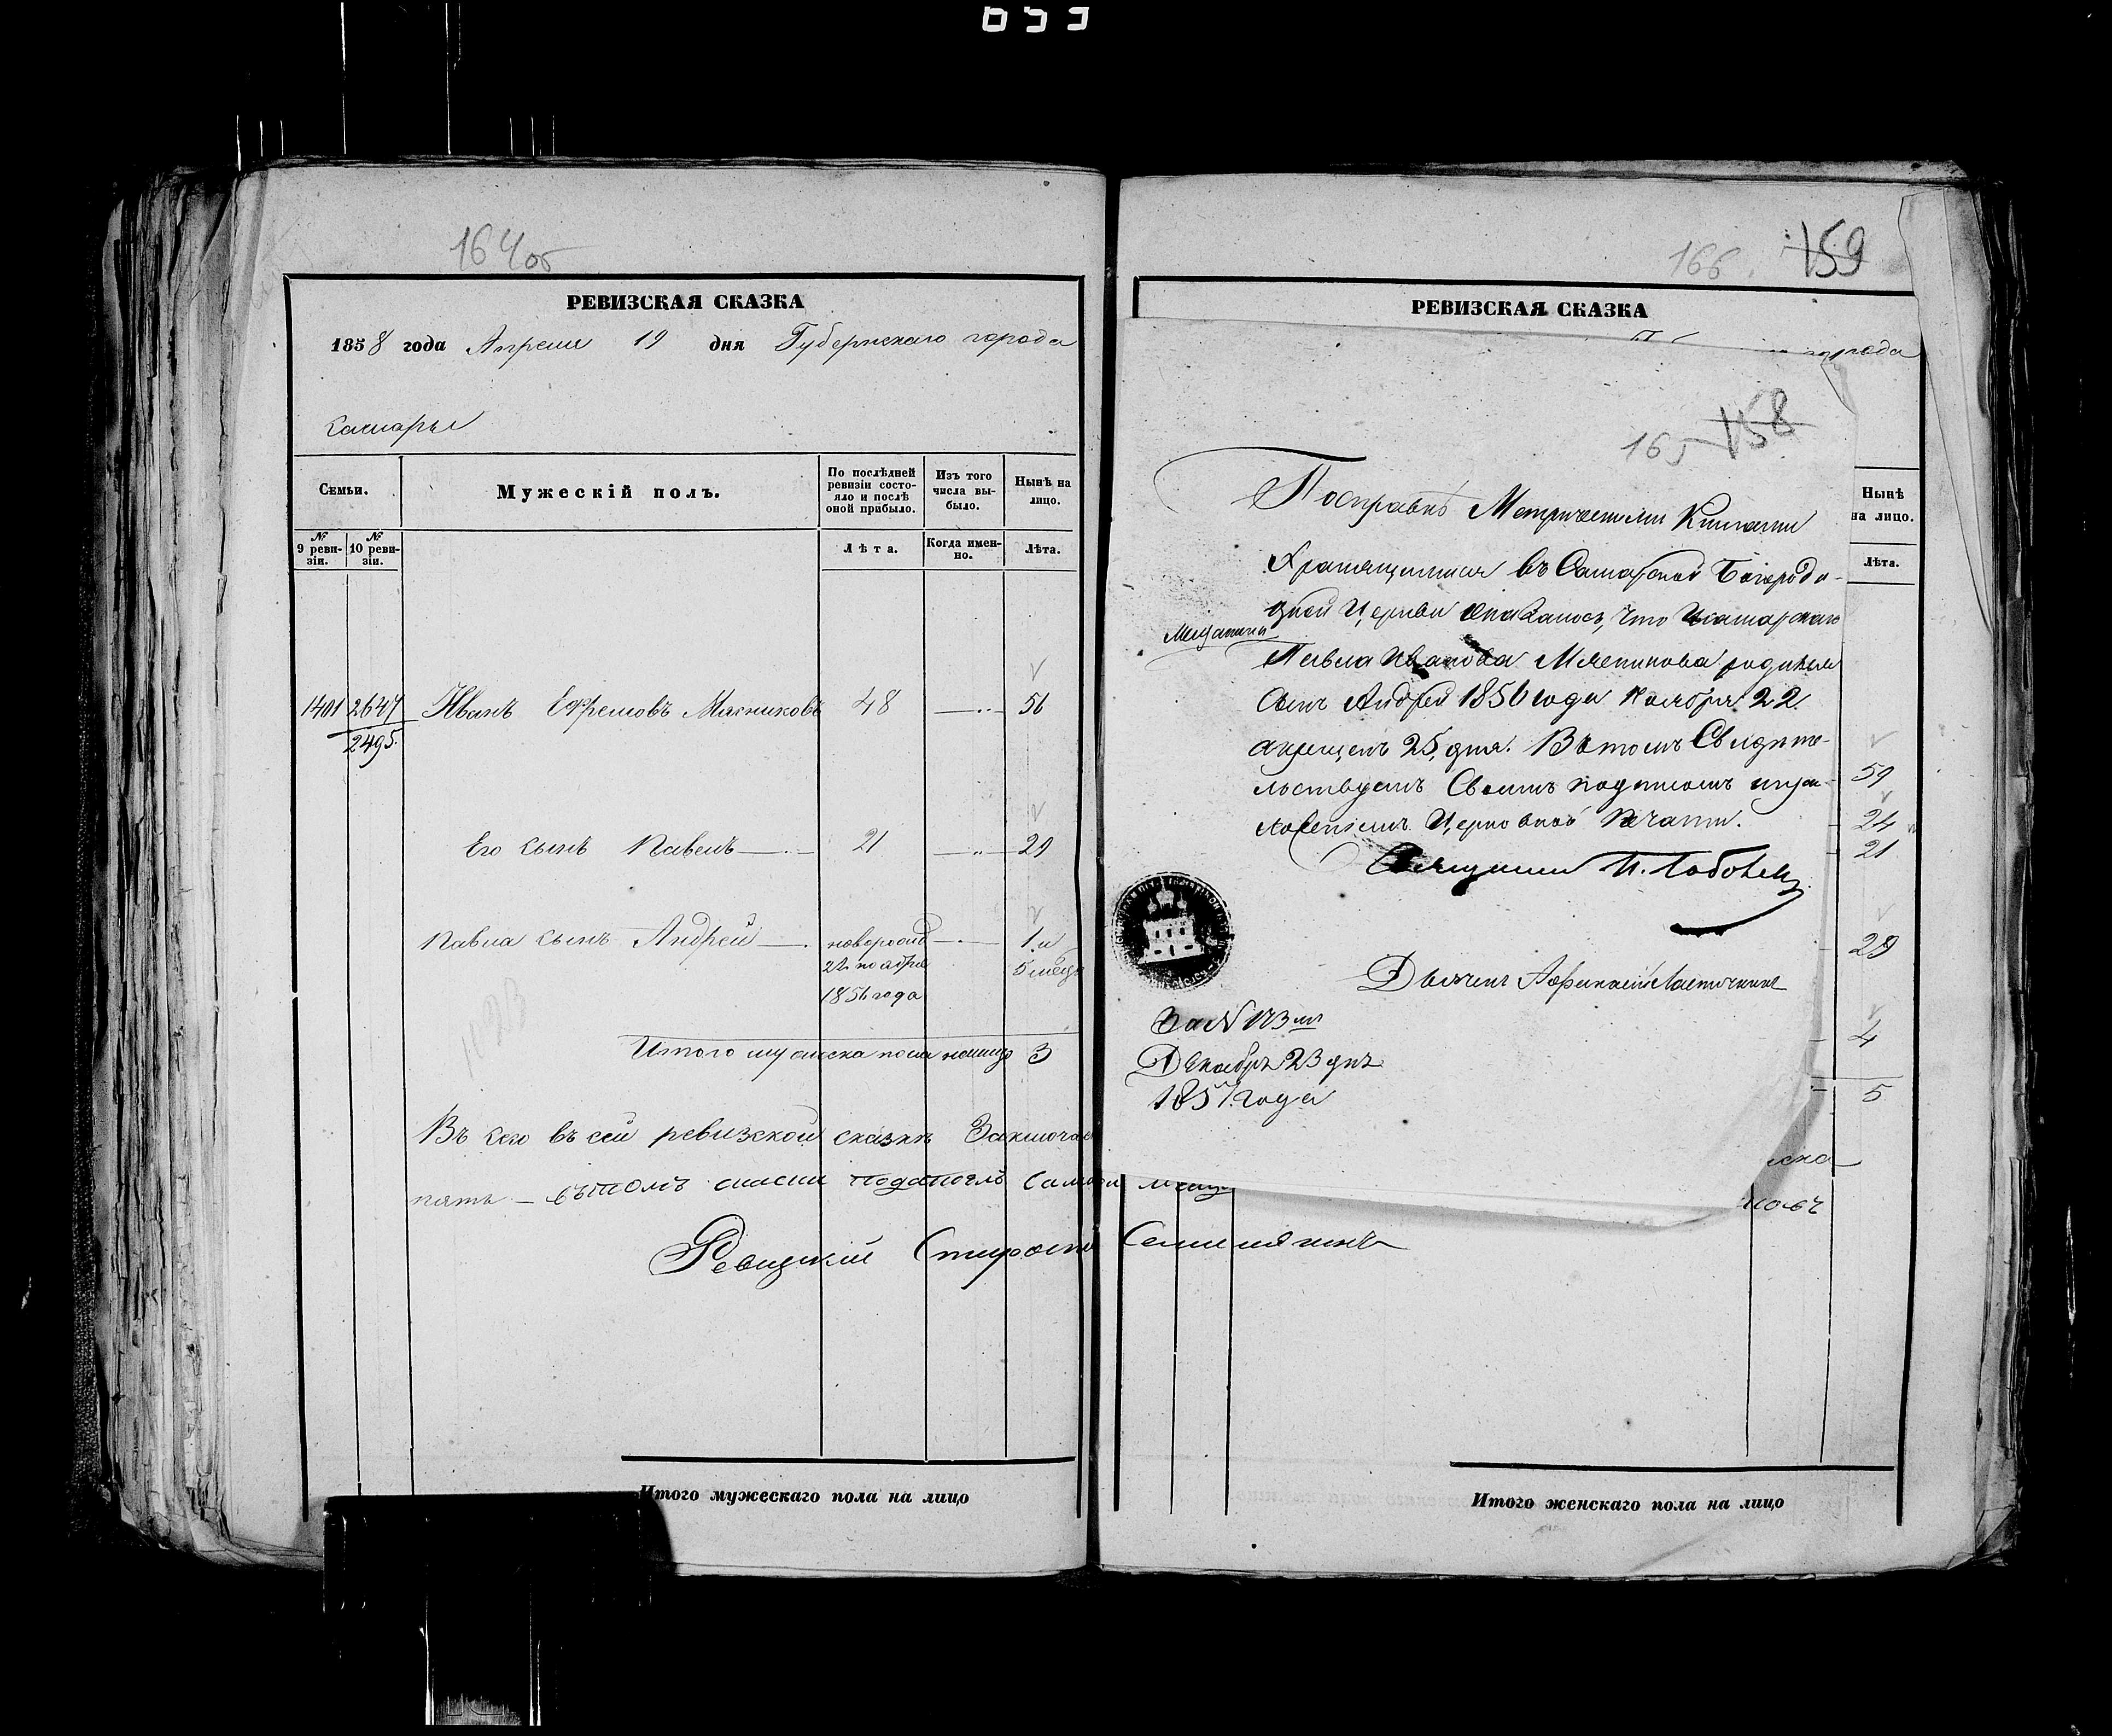 164об
РЕВИЗСКАЯ СКАЗКА
1858 года Апреля 19 дня Губернскаго города
Самары
Семьи.
Мужескій полъ.
По послѣдней ревизіи состо-
яло и послѣ
оной прибыло.
Изъ того
числа вы-
было.
Нынѣ на
лицо.
№
9 реви-
зіи.
№
10 реви-
зіи.
Лѣта.
Когда имен-
но.
Лѣта.
1401 2647 Иванъ Ефремовъ Мясниковъ 48 — 56
2495.
Его сынъ Павелъ — 21 — 29
Павла сынъ Андрей — новорожд — 1 и
22 ноября 5 месц
1856 года
Итого мужеска пола налицо 3
Въ сего въ сей ревизской сказкѣ Заключае
пять —
Ревизскій Староста
166. 159
РЕВИЗСКАЯ СКАЗКА
города
165 158
По справкѣ Метрическими Книгами
Хранящимися въ Самарской Богороди-
цкой Церкви оказалось, что Усамарскаго
Мещанина
Павла Иванова Мясникова родился
Сынъ Андрей 1856 года Ноября 22
акрещенъ 25, дня. Вътомъ Свидете-
льствуемъ Своимъ подписомъ ипри-
ложеніемъ Церковной Печати.
Священникъ
Дьячекъ
За № 173 мъ
Декабря 23 дня
1857. года
Нынѣ
на лицо.
Лѣта.
59
24
21
29
4
5
Итого мужескаго пола на лицо
Итого женскаго пола на лицо